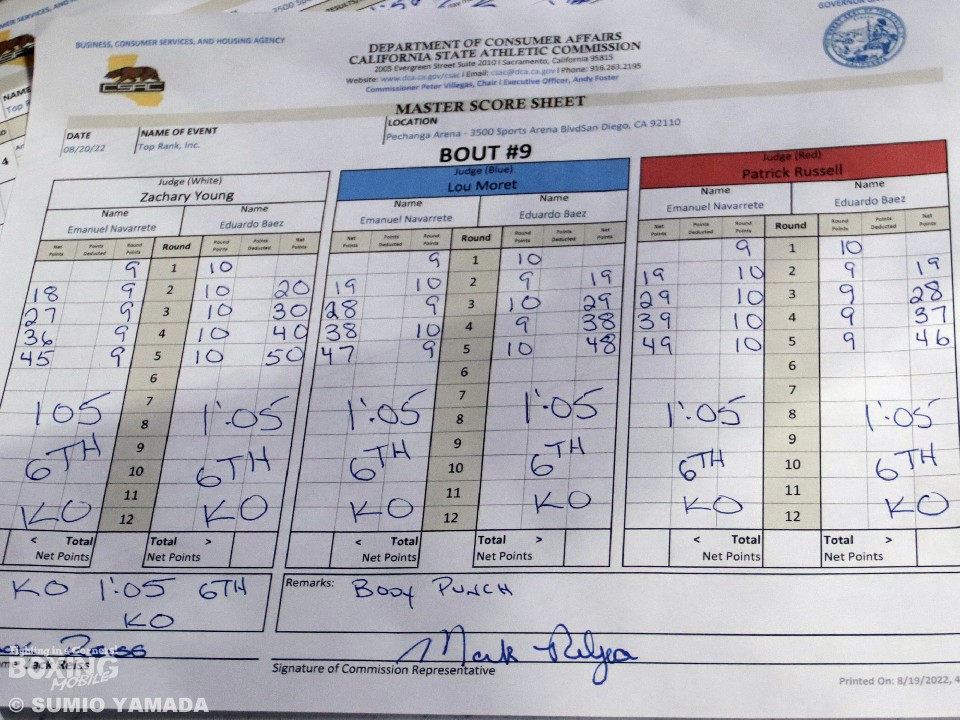 BUSINESS, CONSUMER SERVICES, AND HOUSING AGENCY
GOVERNOR
CSAC
DEPARTMENT OF CONSUMER AFFAIRS
CALIFORNIA STATE ATHLETIC COMMISSION
2005 Evergreen Street Suite 2010 | Sacramento, California 95815
Website: www.dca.ca.gov/csac | Email: csac@dca.ca.gov | Phone: 916.263.2195
Commissioner Peter Villegas, Chair | Executive Officer, Andy Foster
MASTER SCORE SHEET
DATE NAME OF EVENT LOCATION
08/20/22 Top Rank, Inc. Pechanga Arena - 3500 Sports Arena BlvdSan Diego, CA 92110
BOUT #9
Judge (White) Judge (Blue) Judge (Red)
Zachary Young Lou Moret Patrick Russell
Name Name Name Name Name Name
Emanuel Navarrete Eduardo Baez Emanuel Navarrete Eduardo Baez Emanuel Navarrete Eduardo Baez
Net Points Points Deducted Round Points Round Round Points Points Deducted Net Points Net Points Points Deducted Round Points Round Round Points Points Deducted Net Points Net Points Points Deducted Round Points Round Round Points Points Deducted Net Points
9 1 10 9 1 10 9 1 10
18 9 2 10 20 19 10 2 9 19 19 10 2 9 19
27 9 3 10 30 28 9 3 10 29 29 10 3 9 28
36 9 4 10 40 38 10 4 9 38 39 10 4 9 37
45 9 5 10 50 47 9 5 10 48 49 10 5 9 46
6 6 6
7 7 7
105 8 1:05 1:05 8 1:05 1:05 8 1:05
9 9 9
6TH 10 6TH 6TH 10 6TH 6TH 10 6TH
11 11 11
KO 12 KO KO 12 KO KO 12 KO
< Total Total > < Total Total > < Total Total >
Net Points Net Points Net Points Net Points Net Points Net Points
KO 1:05 6TH
KO
Remarks: BODY PUNCH
Jack Reiss
Mark Relyea
Signature of Commission Representative
Printed On: 8/19/2022, 4
Fighting in Corners!
BOXING
MOBILE
© SUMIO YAMADA